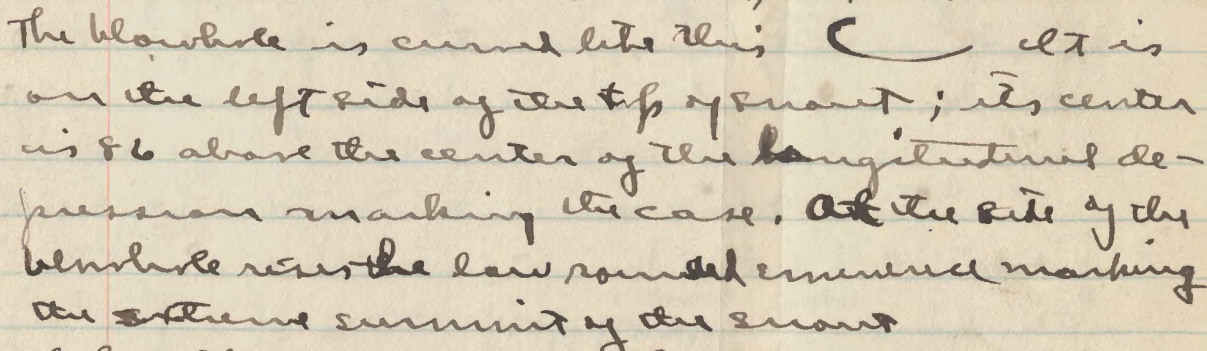 The blowhole is curved like this It is
on the left side of the top of snout; its center
is 86 above the center of the longitudinal de-
pression marking the case. At the side of the
blowhole rises the low rounded eminence marking
the extreme summit of the snout